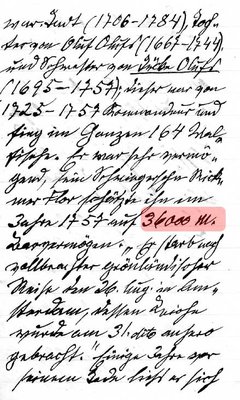 war Indt (1706-1784), Toch-
ter von Oluf Olufs (1667-1744)
und Schwester von Dirke Olufs
(1695-1757); dieser war von
1725-1757 Kommandeur und
fing im Ganzen 164 Wal-
fische. Er war sehr vermö-
gend, sein Schwiegersohn Rick-
mer Flor schätzte ihn im
Jahre 1757 auf 36000 M.
Barvermögen. „Er starb nach
vollbrachter grönländischer
Reise den 26. Aug. in Am-
sterdam, dessen Leiche
wurde am 31. dito anhero
gebracht." Einige Jahre vor
seinem Tode ließ er sich